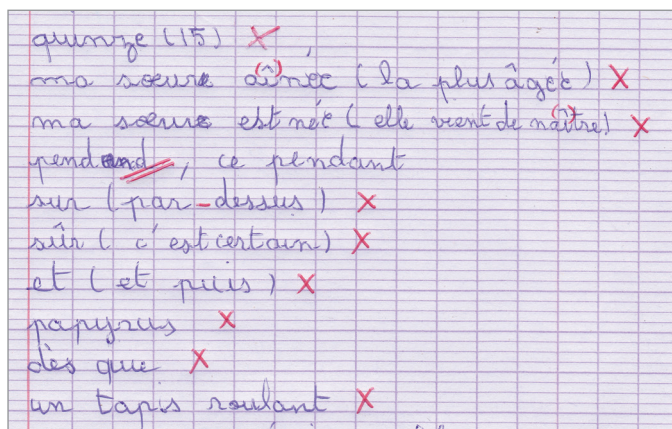 quinze (15) X
ma sœur aînée (la plus âgée) X
ma sœur est née (elle vient de naître) X
pendand, ce pendant
sur (par-dessus) X
sûr (c'est certain) X
et (et puis) X
papyrus X
dès que X
un tapis roulant X